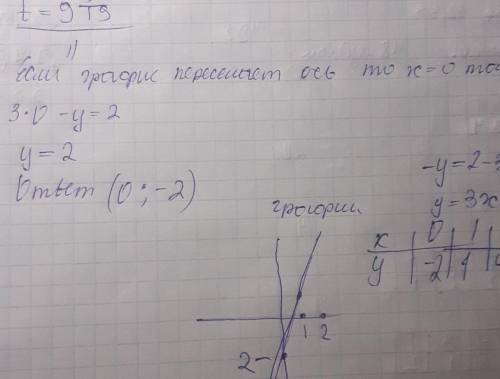 t = 9
11
если график пересекает ось то x=0
3·0 -y=2
y=2
Ответ (0; -2)
-y=2-3
y=3x
график
x | 0 | 1
y | -2 | 1
1 2
2-